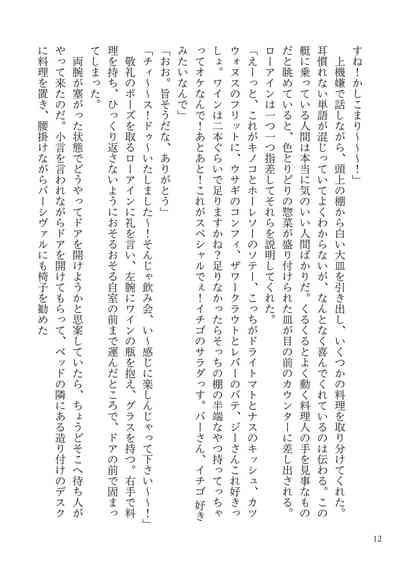 すね！かしこまり〜〜〜！」
　上機嫌で話しながら、頭上の棚から白い大皿を引き出し、いくつかの料理を取り分けてくれた。
耳慣れない単語が混じっていてよくわからないが、なんとなく喜んでくれているのは伝わる。この
艇に乗っている人間は本当に気のいい人間ばかりだ。くるくるとよく動く料理人の手を見事なもの
だと眺めていると、色とりどりの惣菜が盛り付けられた皿が目の前のカウンターに差し出される。
ローアインは一つ一つ指差してそれらを説明してくれた。
「えーっと、これがキノコとホーレソーのソテー、こっちがドライトマトとナスのキッシュ、カツ
ウォヌスのフリットに、ウサギのコンフィ、ザワークラウトとレバーのパテ、ジーさんこれ好きっ
しょ。ワインは二本ぐらいで足りますかね？足りなかったらそっちの棚の半端なやつ持ってっちゃ
ってオケなんで！あとあと！これがスペシャルでぇ！イチゴのサラダっす。パーさん、イチゴ 好き
みたいなんで」
「おお。旨そうだな、ありがとう」
「チィ〜〜ス！ドゥ〜いたしました〜〜！そんじゃ飲み会、い〜感じに楽しんじゃって下さい〜〜！」
　敬礼のポーズを取るローアインに礼を言い、左腕にワインの瓶を抱え、グラスを持つ。右手で料
理を持ち、ひっくり返さないようにおそるおそる自室の前まで運んだところで、ドアの前で固まっ
てしまった。
　両腕が塞がった状態でどうやってドアを開けようかと思案していたら、ちょうどそこへ待ち人が
やって来たのだ。小言を言われながらドアを開けてもらって、ベッドの隣にある造り付けのデスク
に料理を置き、腰掛けながらパーシヴァルにも椅子を勧めた
12